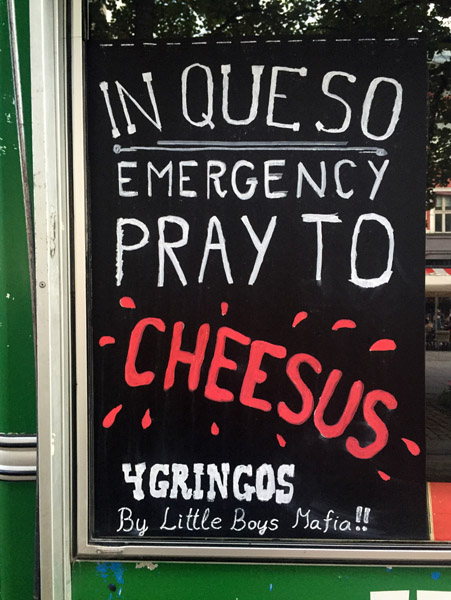 IN QUESO
EMERGENCY
PRAY TO
CHEESUS
4GRINGOS
By Little Boys Mafia!!